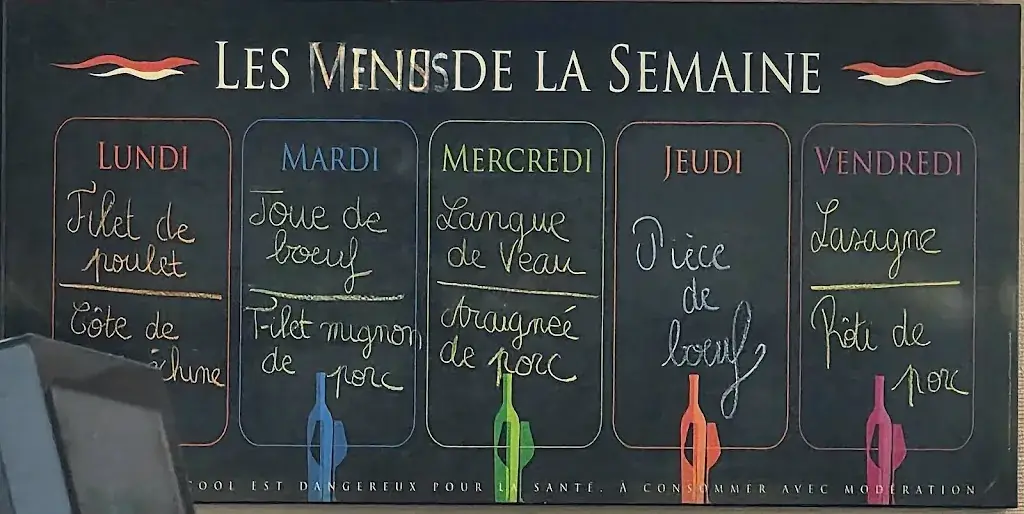 LES MENUS DE LA SEMAINE
LUNDI
Filet de
poulet
Côte de
échine
MARDI
Joue de
boeuf
Filet mignon
de porc
MERCREDI
Langue
de Veau
Araigneé
de porc
JEUDI
Pièce
de
boeuf
VENDREDI
Lasagne
Rôti de
porc
COOL EST DANGEREUX POUR LA SANTÉ. À CONSOMMER AVEC MODÉRATION